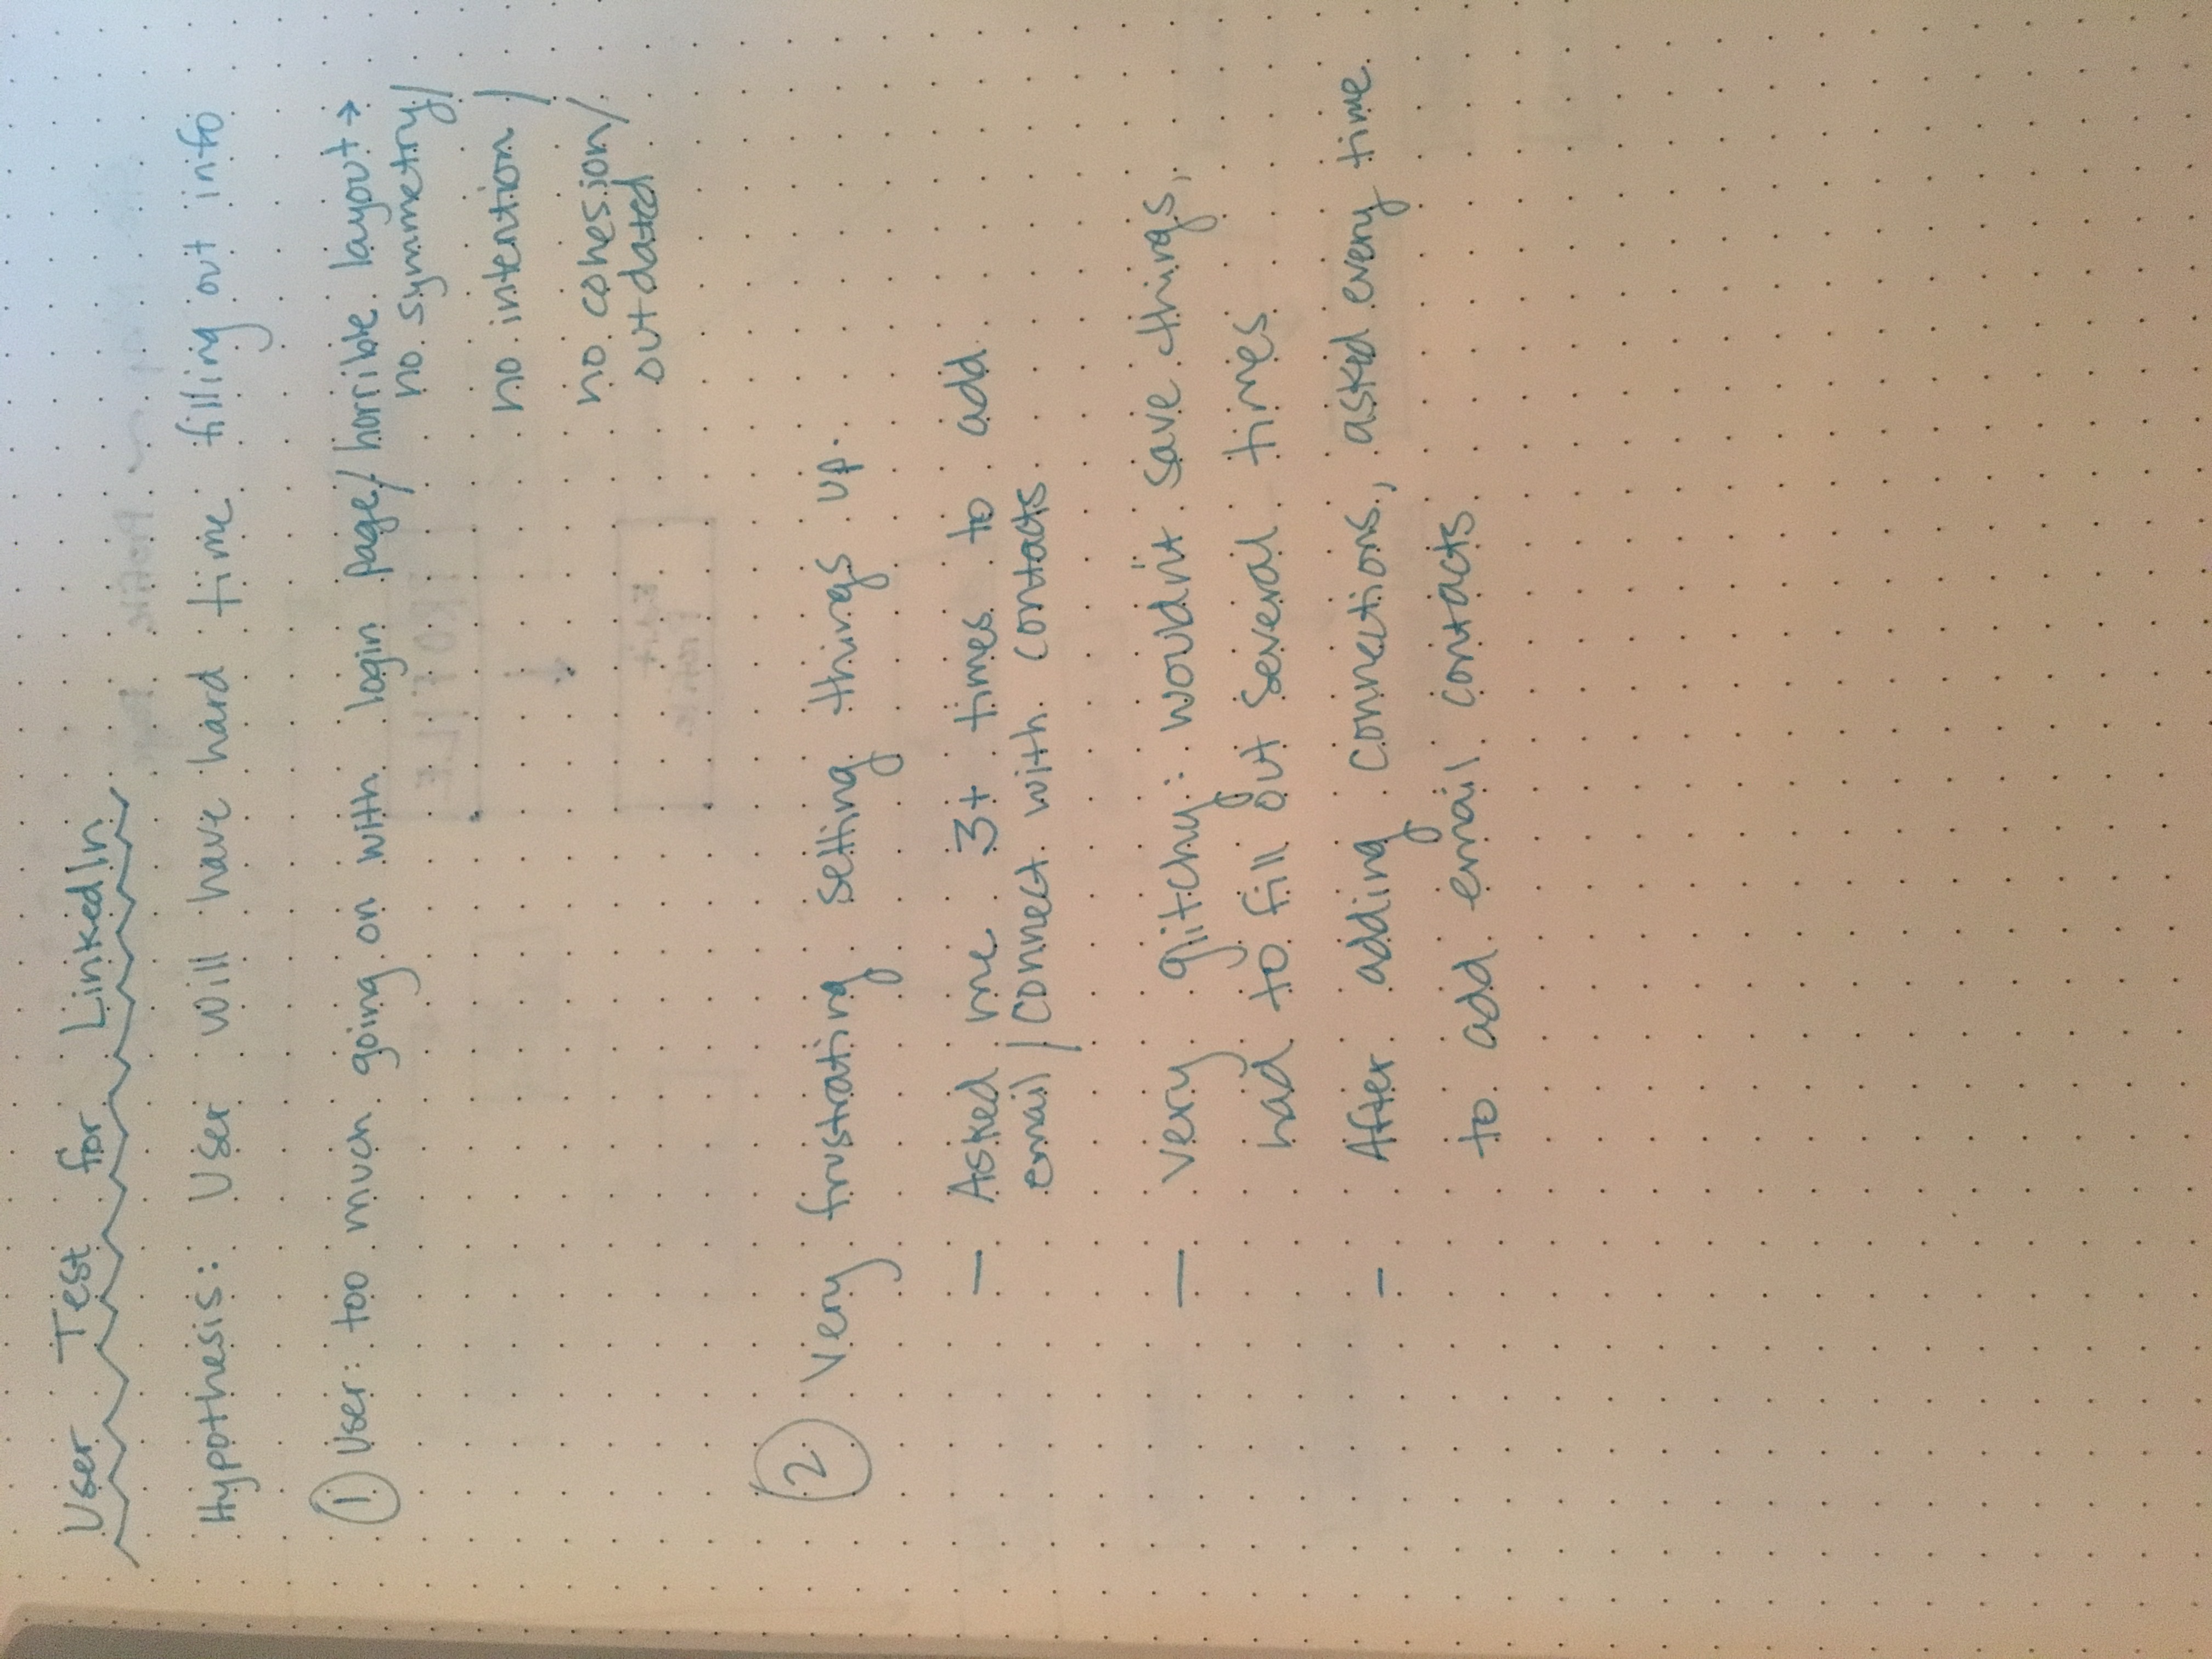 User Test for LinkedIn
Hypothesis: User will have hard time filling out info
① User: too much going on with login page/ horrible layout →
no symmetry/
no intention /
no cohesion/
outdated
② Very frustrating setting things up.
— Asked me 3+ times to add
email/connect with contacts
— very glitchy: wouldn't save things,
had to fill out several times
- After adding connections, asked every time
to add email contacts
PROFILE
Edit
Profile